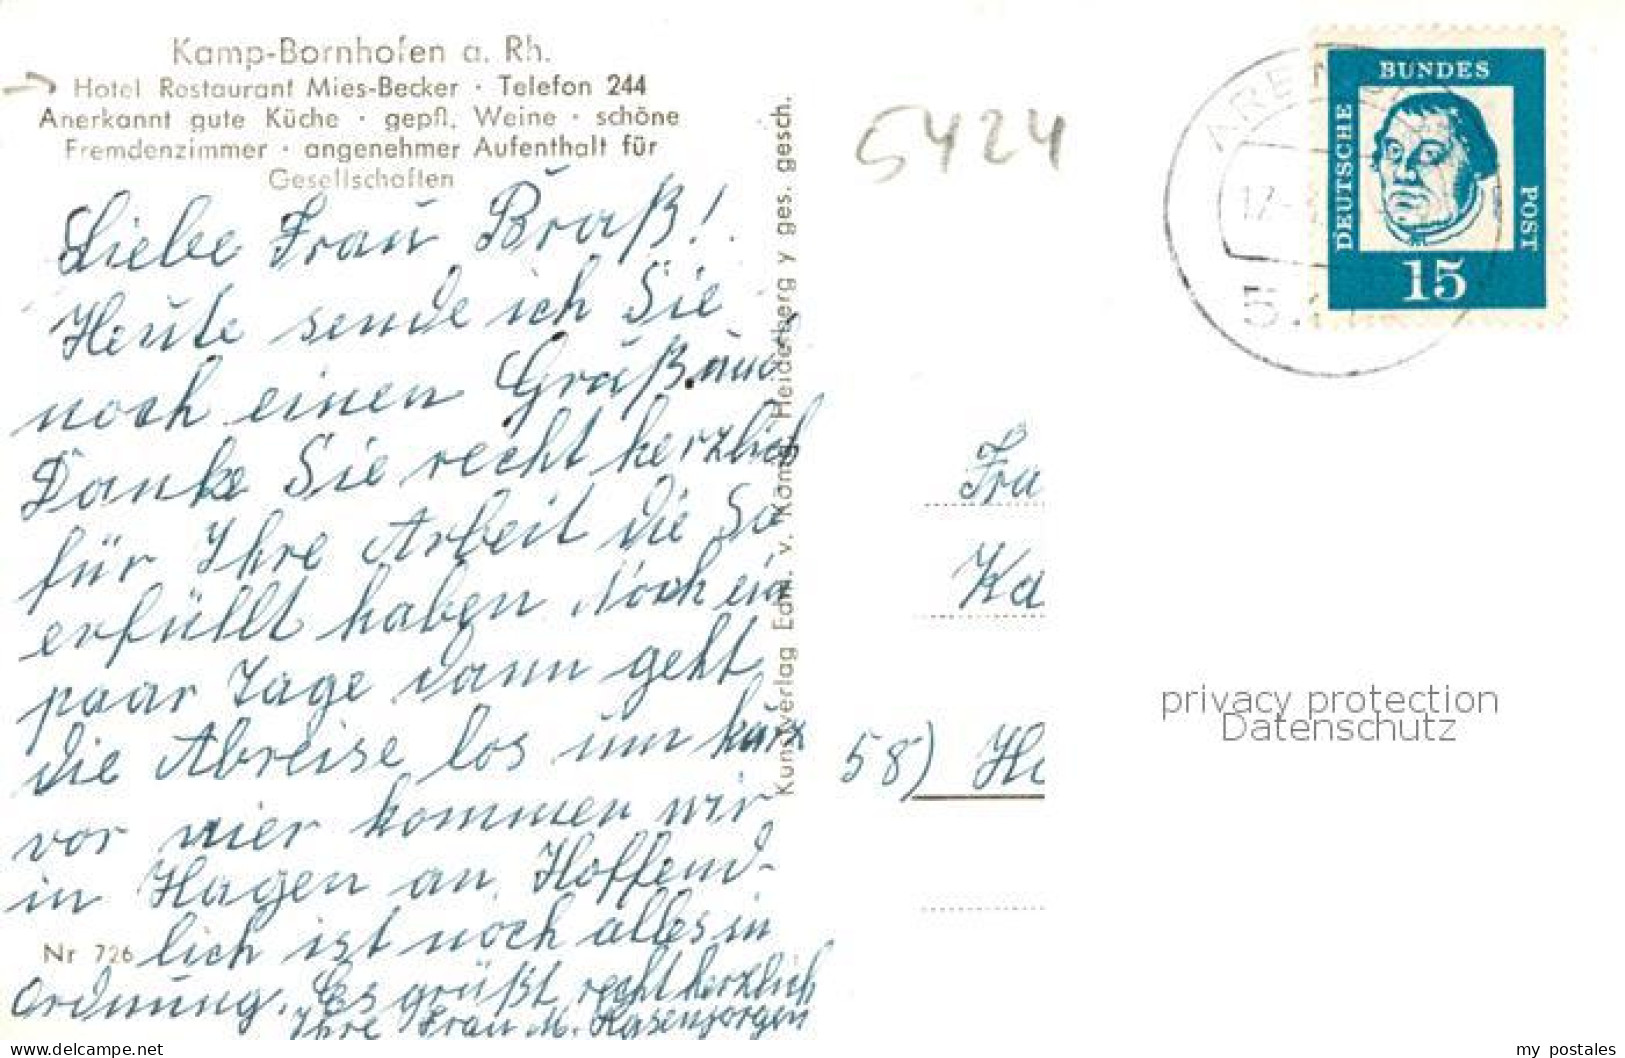 Kamp-Bornhofen a. Rh.
Hotel Restaurant Mies-Becker · Telefon 244
Anerkannt gute Küche · gepfl. Weine · schöne
Fremdenzimmer · angenehmer Aufenthalt für
Gesellschaften
Liebe Frau Braß!
Heute sende ich Sie
noch einen Gruß und
Danke Sie recht herzlich
für Ihre Arbeit die Sa
erfüllt haben Noch ein
paar Tage dann geht
die Abreise los um kurz
vor vier kommen wir
in Hagen an. Hoffend-
lich ist noch alles in
Ordnung. Es grüßt recht herzlich
Ihre Frau M.
Nr 726
Kunstverlag Edm. v. König, Heidelberg y ges. gesch.
5424
DEUTSCHE BUNDES POST
15
Fra
Ka
58) Ha
privacy protection
Datenschutz
my_postales